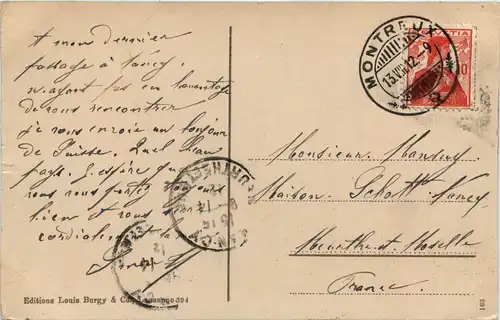 A mon dernier
passage à Nancy
n'ayant pas eu l'avantage
de vous rencontrer
je vous envoie un bonjour
de Suisse. Quel beau
pays. J'espère que
vous vous portez toujours
bien et vous
cordialement la
MONTREUX
13.VII.12.-9
HELVETIA
10
Monsieur Mansuy
Maison Schott Nancy
Meurthe-et-Moselle
France.
NANCY
MEURTHE
Editions Louis Burgy & Co., Lausanne 394
163